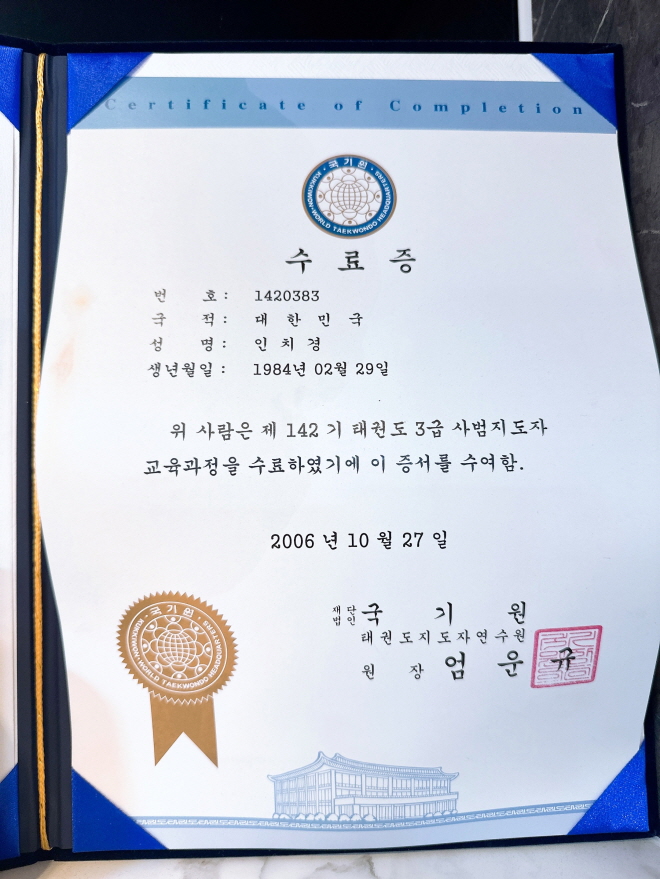 Certificate of Completion
국기원
KUKKIWON·WORLD TAEKWONDO HEADQUARTERS
수 료 증
번 호 : 1420383
국 적 : 대 한 민 국
성 명 : 인 치 경
생년월일 : 1984년 02월 29일
위 사람은 제 142 기 태권도 3급 사범지도자
교육과정을 수료하였기에 이 증서를 수여함.
2006 년 10 월 27 일
재단법인 국 기 원
태권도지도자연수원
원 장 엄 운 규
국기원
KUKKIWON·WORLD TAEKWONDO HEADQUARTERS